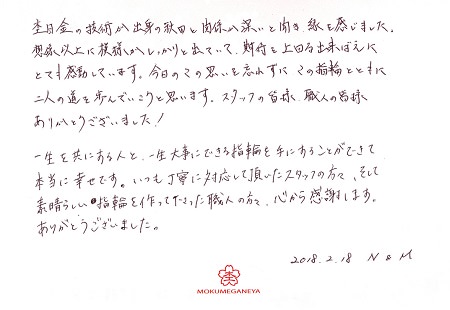 杢目金の技術が出身の秋田と関係が深いと聞き、縁を感じました。
想像以上に模様がしっかりと出ていて、期待を上回る出来ばえに
とても感動しています。今日のこの思いを忘れずに この指輪とともに
二人の道を歩んでいこうと思います。スタッフの皆様、職人の皆様
ありがとうございました！
一生を共にする人と、一生大事にできる指輪を手にすることができて
本当に幸せです。いつも丁寧に対応して頂いたスタッフの方々、そして
素晴らしい指輪を作って下さった職人の方々、心から感謝します。
ありがとうございました。
2018.2.18 N & M
MOKUMEGANEYA